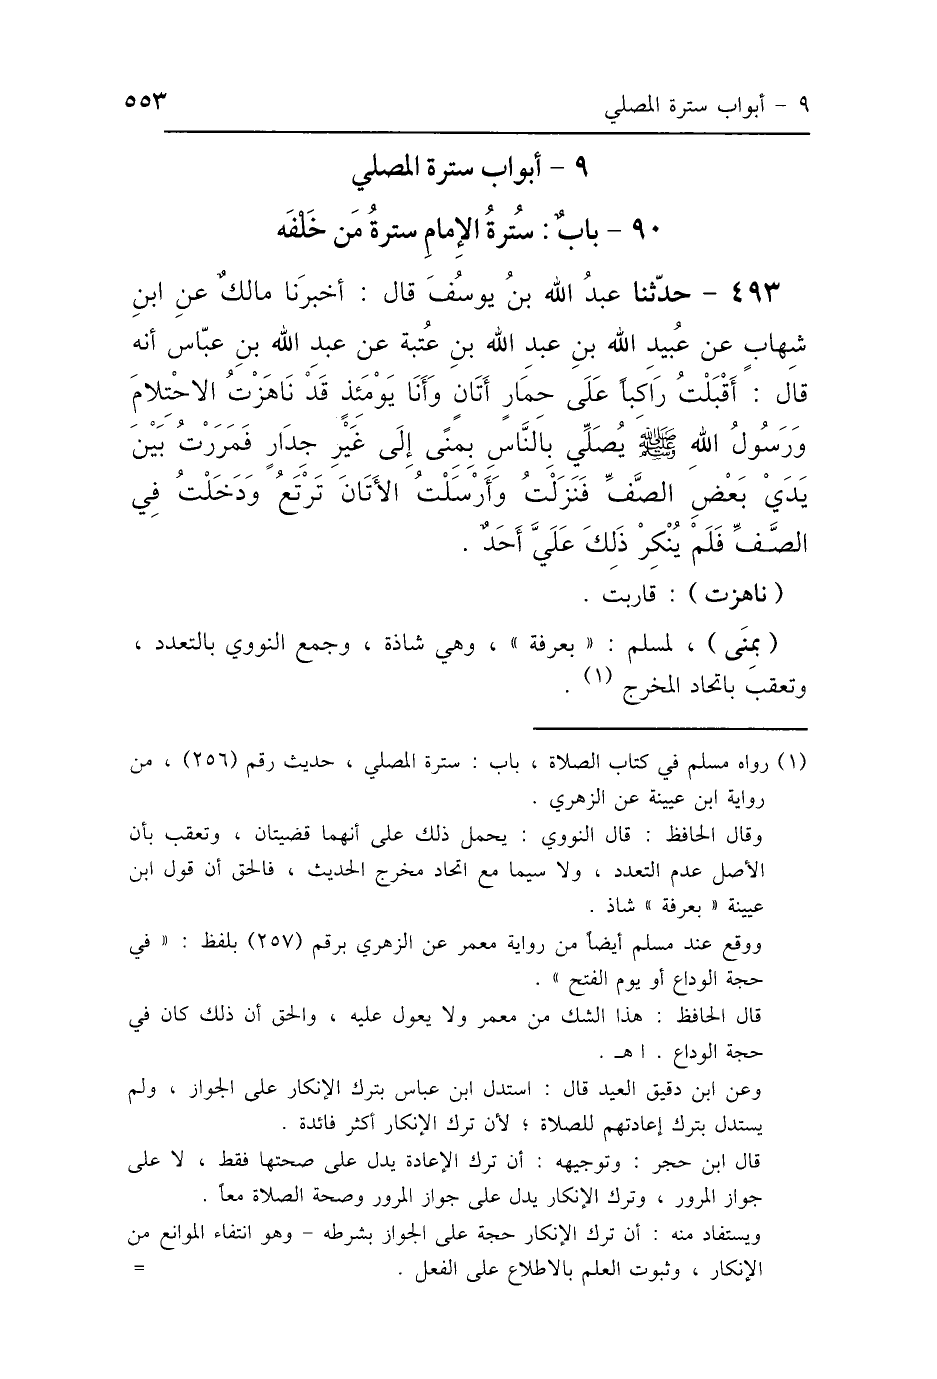 ٩ - أبواب سترة المصلي ٥٥٣
٩ - أبواب سترة المصلي
٩٠ - بابٌ : سُترةُ الإمامِ سترةُ مَن خَلْفَه
٤٩٣ - حدّثنا عبدُ الله بنُ يوسُفَ قال : أخبرَنا مالكٌ عنِ ابنِ
شهابٍ عن عُبيدِ الله بنِ عبد الله بنِ عُتبةَ عن عبدِ الله بنِ عبّاسٍ أنه
قال : أَقْبَلْتُ رَاكِباً عَلَى حِمَارٍ أَتَانٍ وَأَنَا يَوْمَئِذٍ قَدْ نَاهَزْتُ الاحْتِلامَ
وَرَسُولُ الله ﷺ يُصَلِّي بِالنَّاسِ بِمِنًى إلَى غَيْرِ جِدَارٍ فَمَرَرْتُ بَيْنَ
يَدَيْ بَعْضِ الصَّفِّ فَنَزَلْتُ وَأَرْسَلْتُ الأتَانَ تَرْتَعُ وَدَخَلْتُ فِي
الصَّفِّ فَلَمْ يُنْكِرْ ذَلِكَ عَلَيَّ أَحَدٌ .
( ناهزت ) : قاربت .
( بِمِنًى ) ، لمسلم : « بعرفة » ، وهي شاذة ، وجمع النووي بالتعدد ،
وتعقبَ باتحاد المخرج (١) .
(١) رواه مسلم في كتاب الصلاة ، باب : سترة المصلي ، حديث رقم (٢٥٦) ، من
رواية ابن عيينة عن الزهري .
وقال الحافظ : قال النووي : يحمل ذلك على أنهما قضيتان ، وتعقب بأن
الأصل عدم التعدد ، ولا سيما مع اتحاد مخرج الحديث ، فالحق أن قول ابن
عيينة « بعرفة » شاذ .
ووقع عند مسلم أيضاً من رواية معمر عن الزهري برقم (٢٥٧) بلفظ : « في
حجة الوداع أو يوم الفتح » .
قال الحافظ : هذا الشك من معمر ولا يعول عليه ، والحق أن ذلك كان في
حجة الوداع . ا هـ .
وعن ابن دقيق العيد قال : استدل ابن عباس بترك الإنكار على الجواز ، ولم
يستدل بترك إعادتهم للصلاة ؛ لأن ترك الإنكار أكثر فائدة .
قال ابن حجر : وتوجيهه : أن ترك الإعادة يدل على صحتها فقط ، لا على
جواز المرور ، وترك الإنكار يدل على جواز المرور وصحة الصلاة معاً .
ويستفاد منه : أن ترك الإنكار حجة على الجواز بشرطه - وهو انتفاء الموانع من
الإنكار ، وثبوت العلم بالاطلاع على الفعل . =